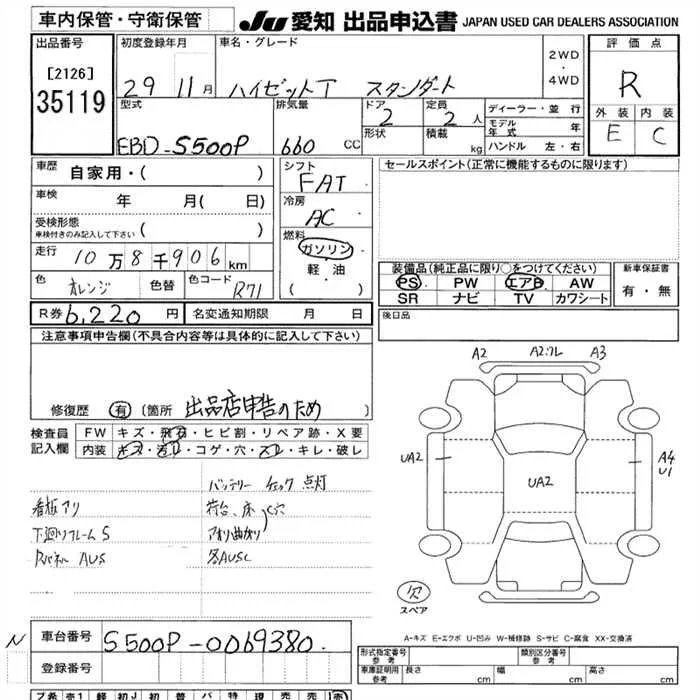 車内保管・守衛保管
JU 愛知 出品申込書 JAPAN USED CAR DEALERS ASSOCIATION
出品番号
[2126]
35119
初度登録年月
29 11月
車名・グレード
ハイゼットT スタンダート
2WD
・
4WD
評価点
R
外装 内装
E C
型式
EBD-S500P
排気量
660 CC
ドア
2
形状
定員
2人
積載
kg
ディーラー・並行
モデル年式 年
ハンドル 左・右
車歴 自家用・( )
車検 年 月( 日)
受検形態
車検付きのみ記入して下さい ( )
走行 10万8千906km
色 オレンジ 色替 色コード R71
シフト
FAT
冷房
AC
燃料
ガソリン
・
軽油
( )
セールスポイント(正常に機能するものに限ります)
装備品(純正品に限り○をつけてください)
PS PW エアB AW
SR ナビ TV カワシート
新車保証書
有・無
R券 6,220円 名変通知期限 月 日
後日品
注意事項申告欄(不具合内容等は具体的に記入して下さい)
修復歴 有 〔箇所 出品店申告のため
検査員記入欄
FW キズ・飛石・ヒビ割・リペア跡・X要
内装 キズ・汚れ・コゲ・穴・スレ・キレ・破レ
バッテリー チェック 点灯
看板アリ 荷台、床 穴
下廻りフレームS アオリ曲がり
Rパネル AUS 各AUSC
A2 A2:ワレ A3
UA2 UA2 A4
U1
欠
スペア
A-キズ E-エクボ U-凹み W-補修跡 S-サビ C-腐食 XX-交換済
N
車台番号 S500P-0069380
登録番号
形式指定番号
参考
類別区分番号
参考
車庫証明用
参考
長さ 幅 高さ